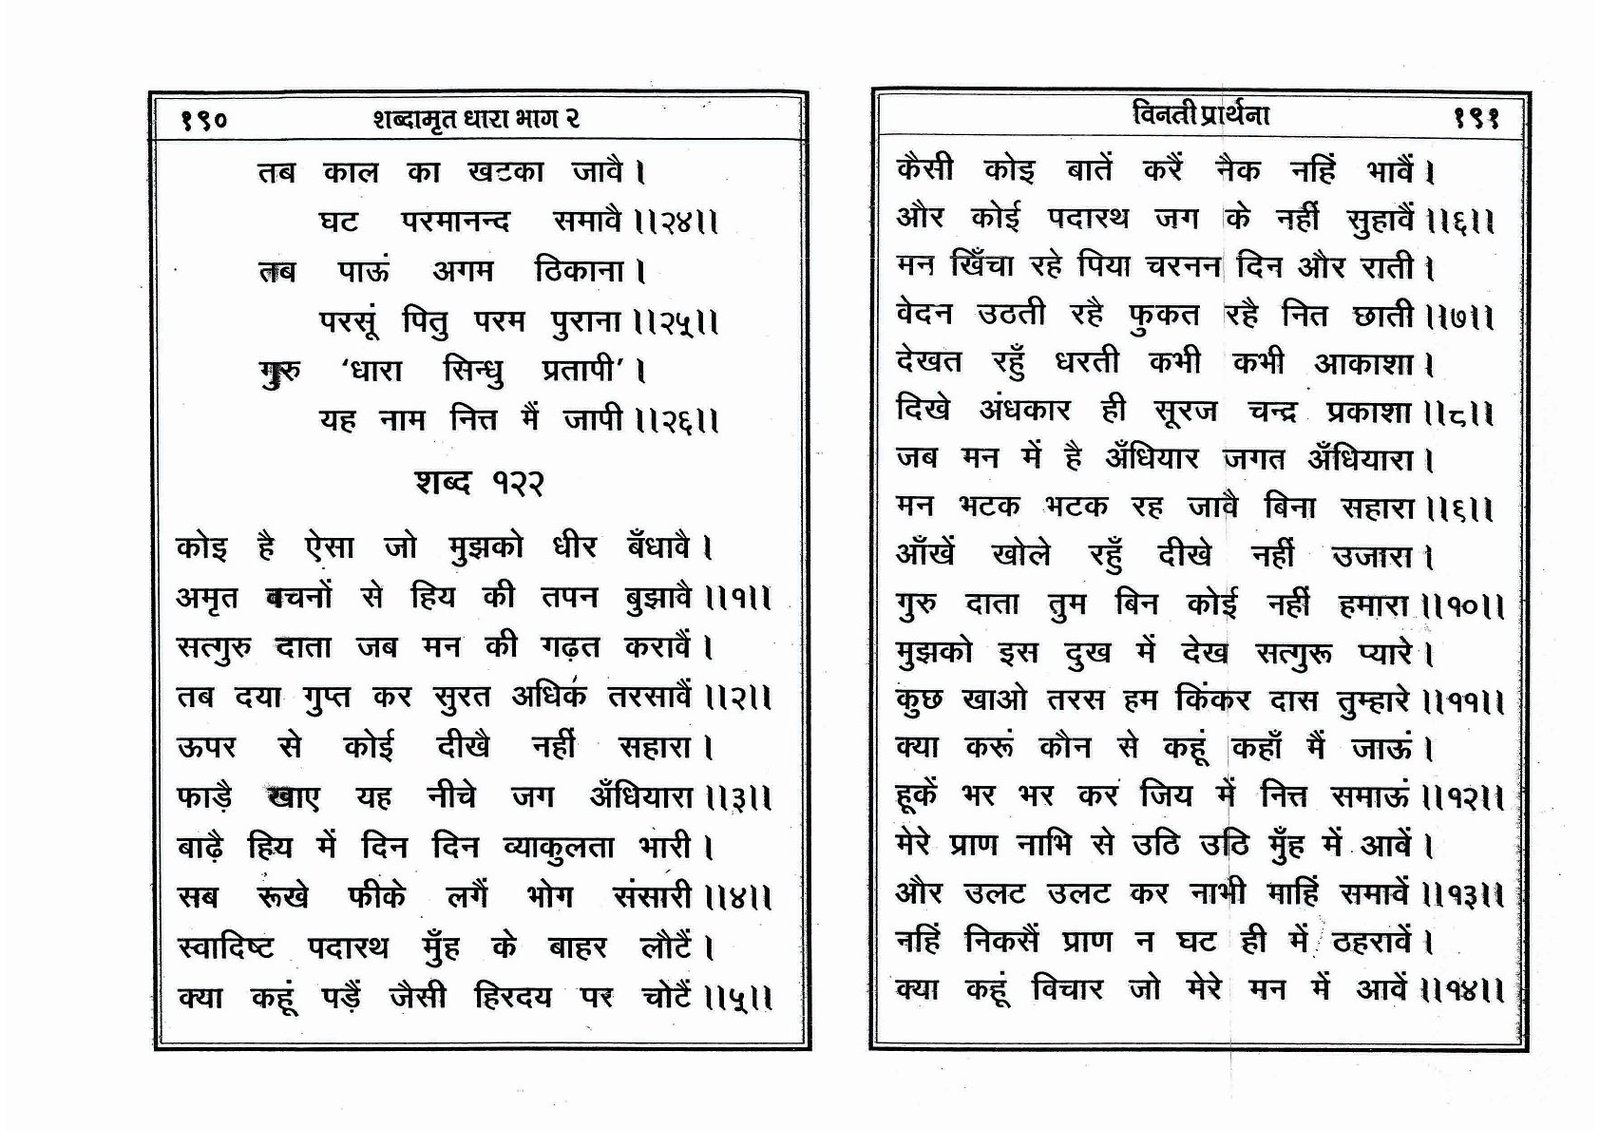 १९०
शब्दामृत धारा भाग २
तब काल का खटका जावै ।
घट परमानन्द समावै ।।२४।।
तब पाऊं अगम ठिकाना ।
परसूं पितु परम पुराना ।।२५।।
गुरु ‘धारा सिन्धु प्रतापी’ ।
यह नाम नित्त मैं जापी ।।२६।।
शब्द १२२
कोइ है ऐसा जो मुझको धीर बँधावै ।
अमृत बचनों से हिय की तपन बुझावै ।।१।।
सत्गुरु दाता जब मन की गढ़त करावैं ।
तब दया गुप्त कर सुरत अधिक तरसावैं ।।२।।
ऊपर से कोई दीखै नहीं सहारा ।
फाड़ै खाए यह नीचे जग अँधियारा ।।३।।
बाढ़ै हिय में दिन दिन व्याकुलता भारी ।
सब रूखे फीके लगैं भोग संसारी ।।४।।
स्वादिष्ट पदारथ मुँह के बाहर लौटैं ।
क्या कहूं पड़ैं जैसी हिरदय पर चोटैं ।।५।।
विनती प्रार्थना
१९१
कैसी कोइ बातें करैं नैक नहिं भावैं ।
और कोई पदारथ जग के नहीं सुहावैं ।।६।।
मन खिँचा रहे पिया चरनन दिन और राती ।
वेदन उठती रहै फुकत रहै नित छाती ।।७।।
देखत रहुँ धरती कभी कभी आकाशा ।
दिखे अंधकार ही सूरज चन्द्र प्रकाशा ।।८।।
जब मन में है अँधियार जगत अँधियारा ।
मन भटक भटक रह जावै बिना सहारा ।।९।।
आँखें खोले रहुँ दीखे नहीं उजारा ।
गुरु दाता तुम बिन कोई नहीं हमारा ।।१०।।
मुझको इस दुख में देख सत्गुरू प्यारे ।
कुछ खाओ तरस हम किंकर दास तुम्हारे ।।११।।
क्या करूं कौन से कहूं कहाँ मैं जाऊं ।
हूकें भर भर कर जिय में नित्त समाऊं ।।१२।।
मेरे प्राण नाभि से उठि उठि मुँह में आवें ।
और उलट उलट कर नाभी माहिं समावें ।।१३।।
नहिं निकसैं प्राण न घट ही में ठहरावें ।
क्या कहूं विचार जो मेरे मन में आवें ।।१४।।